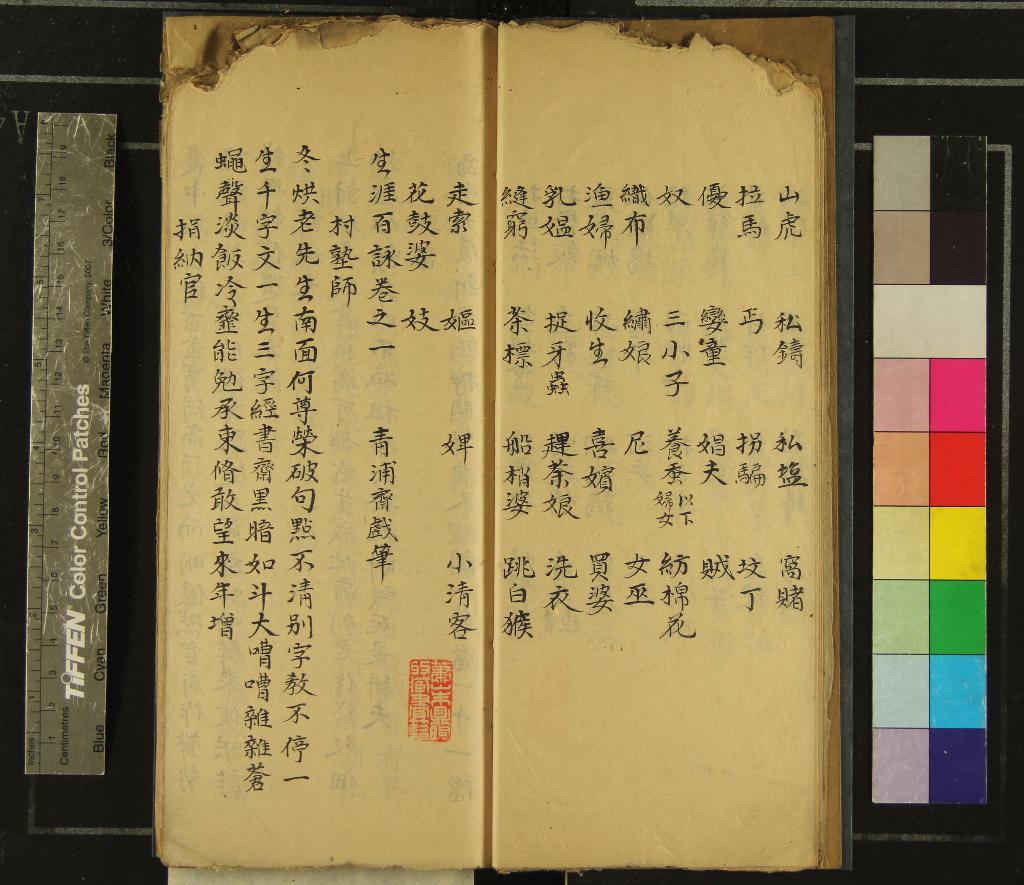 山虎 私鑄 私塩 窩賭
拉馬 丐 拐騙 坟丁
優 孌童 娼夫 賊
奴 三小子 養蚕以下婦女 紡棉花
織布 繡娘 尼 女巫
漁婦 收生 喜嬪 買婆
乳媪 捉牙蟲 趕茶娘 洗衣
縫窮 茶標 船梢婆 跳白猴
走索 嫗 婢 小清客
花鼓婆 妓
生涯百詠卷之一 青浦齋戲筆
村塾師
冬烘老先生南面何尊榮破句點不清别字教不停一
生千字文一生三字經書齋黑暗如斗大嘈嘈雜雜蒼
蠅聲淡飯冷虀能勉承束脩敢望來年增
捐納官
TIFFEN Color Control Patches
© The Tiffen Company, 2007
Blue Cyan Green Yellow Red Magenta White 3/Color Black
Inches
Centimetres